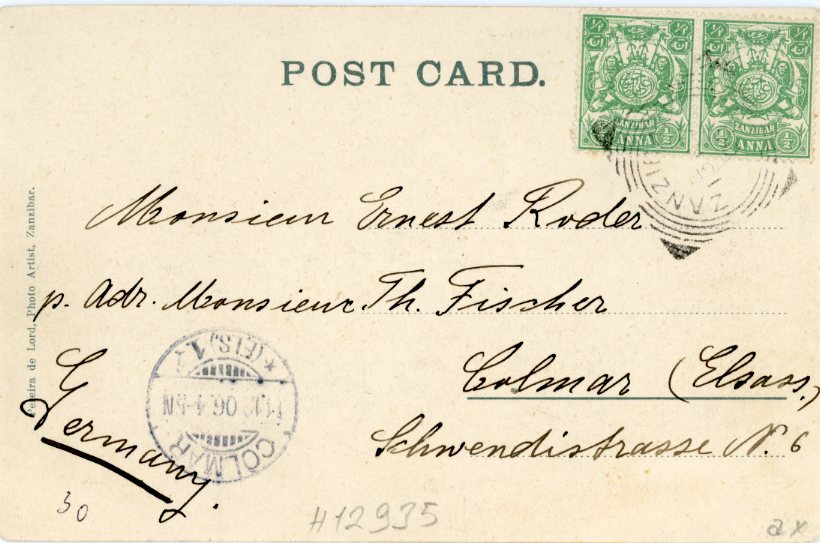 POST CARD.
ZANZIBAR
½ ANNA ½
ZANZIBAR
½ ANNA ½
ZANZIB
Monsieur Ernest Roder
p. Adr. Monsieur Th. Fischer
Colmar (Elsass)
Schwendistrasse N. 6
Germany.
COLMAR
*(ELS) 1
06. 4-5N
Pereira de Lord, Photo Artist, Zanzibar.
30
H12935
ax